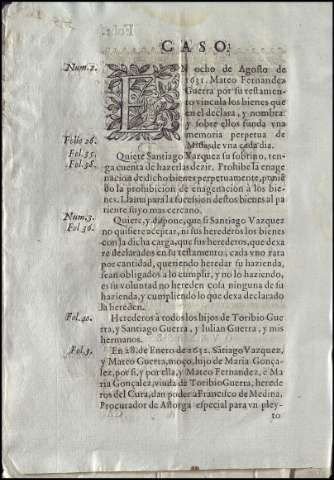 CASO.
Num. 2.
EN ocho de Agosto de
1631. Mateo Fernandez
Guerra por su testamento
vincula los bienes que
en el declara, y nombra:
y sobre ellos funda vna
memoria perpetua de
Missas de vna cada dia.
Folio 26.
Fol. 35.
Fol. 36.
Quiere Santiago Vazquez su sobrino, tenga
cuenta de hazerlas dezir. Prohibe la enagenacion
de dicho bienes perpetuamente,
la prohibicion de enagenacion à los bienes.
Llama para la sucesion destos bienes al pariente
suyo mas cercano.
Num. 3.
Fol. 36.
Quiere, y dispone, que si Santiago Vazquez
no quisiere aceptar, ni sus herederos los bienes
con la dicha carga, que sus herederos, que dexare
declarados en su testamento; cada vno rata
por cantidad, queriendo heredar su hazienda,
sean obligados à lo cumplir, y no lo haziendo,
es su voluntad no hereden cosa ninguna de su
hazienda, y cumpliendo lo que dexa declarado
la hereden.
Fol. 40.
Herederos à todos los hijos de Toribio Guerra,
y Santiago Guerra, y Iulian Guerra, y mis
hermanos.
Fol. 3.
En 28. de Enero de 1652. Sãtiago Vazquez,
y Mateo Guerra, moço, hijo de Maria Gonçalez,
por si, y por ella, y Mateo Fernandez, è Maria
Gonçalez, viuda de Toribio Guerra, herederos
del Cura, dan poder à Francisco de Medina,
Procurador de Astorga especial para vn pley-
to